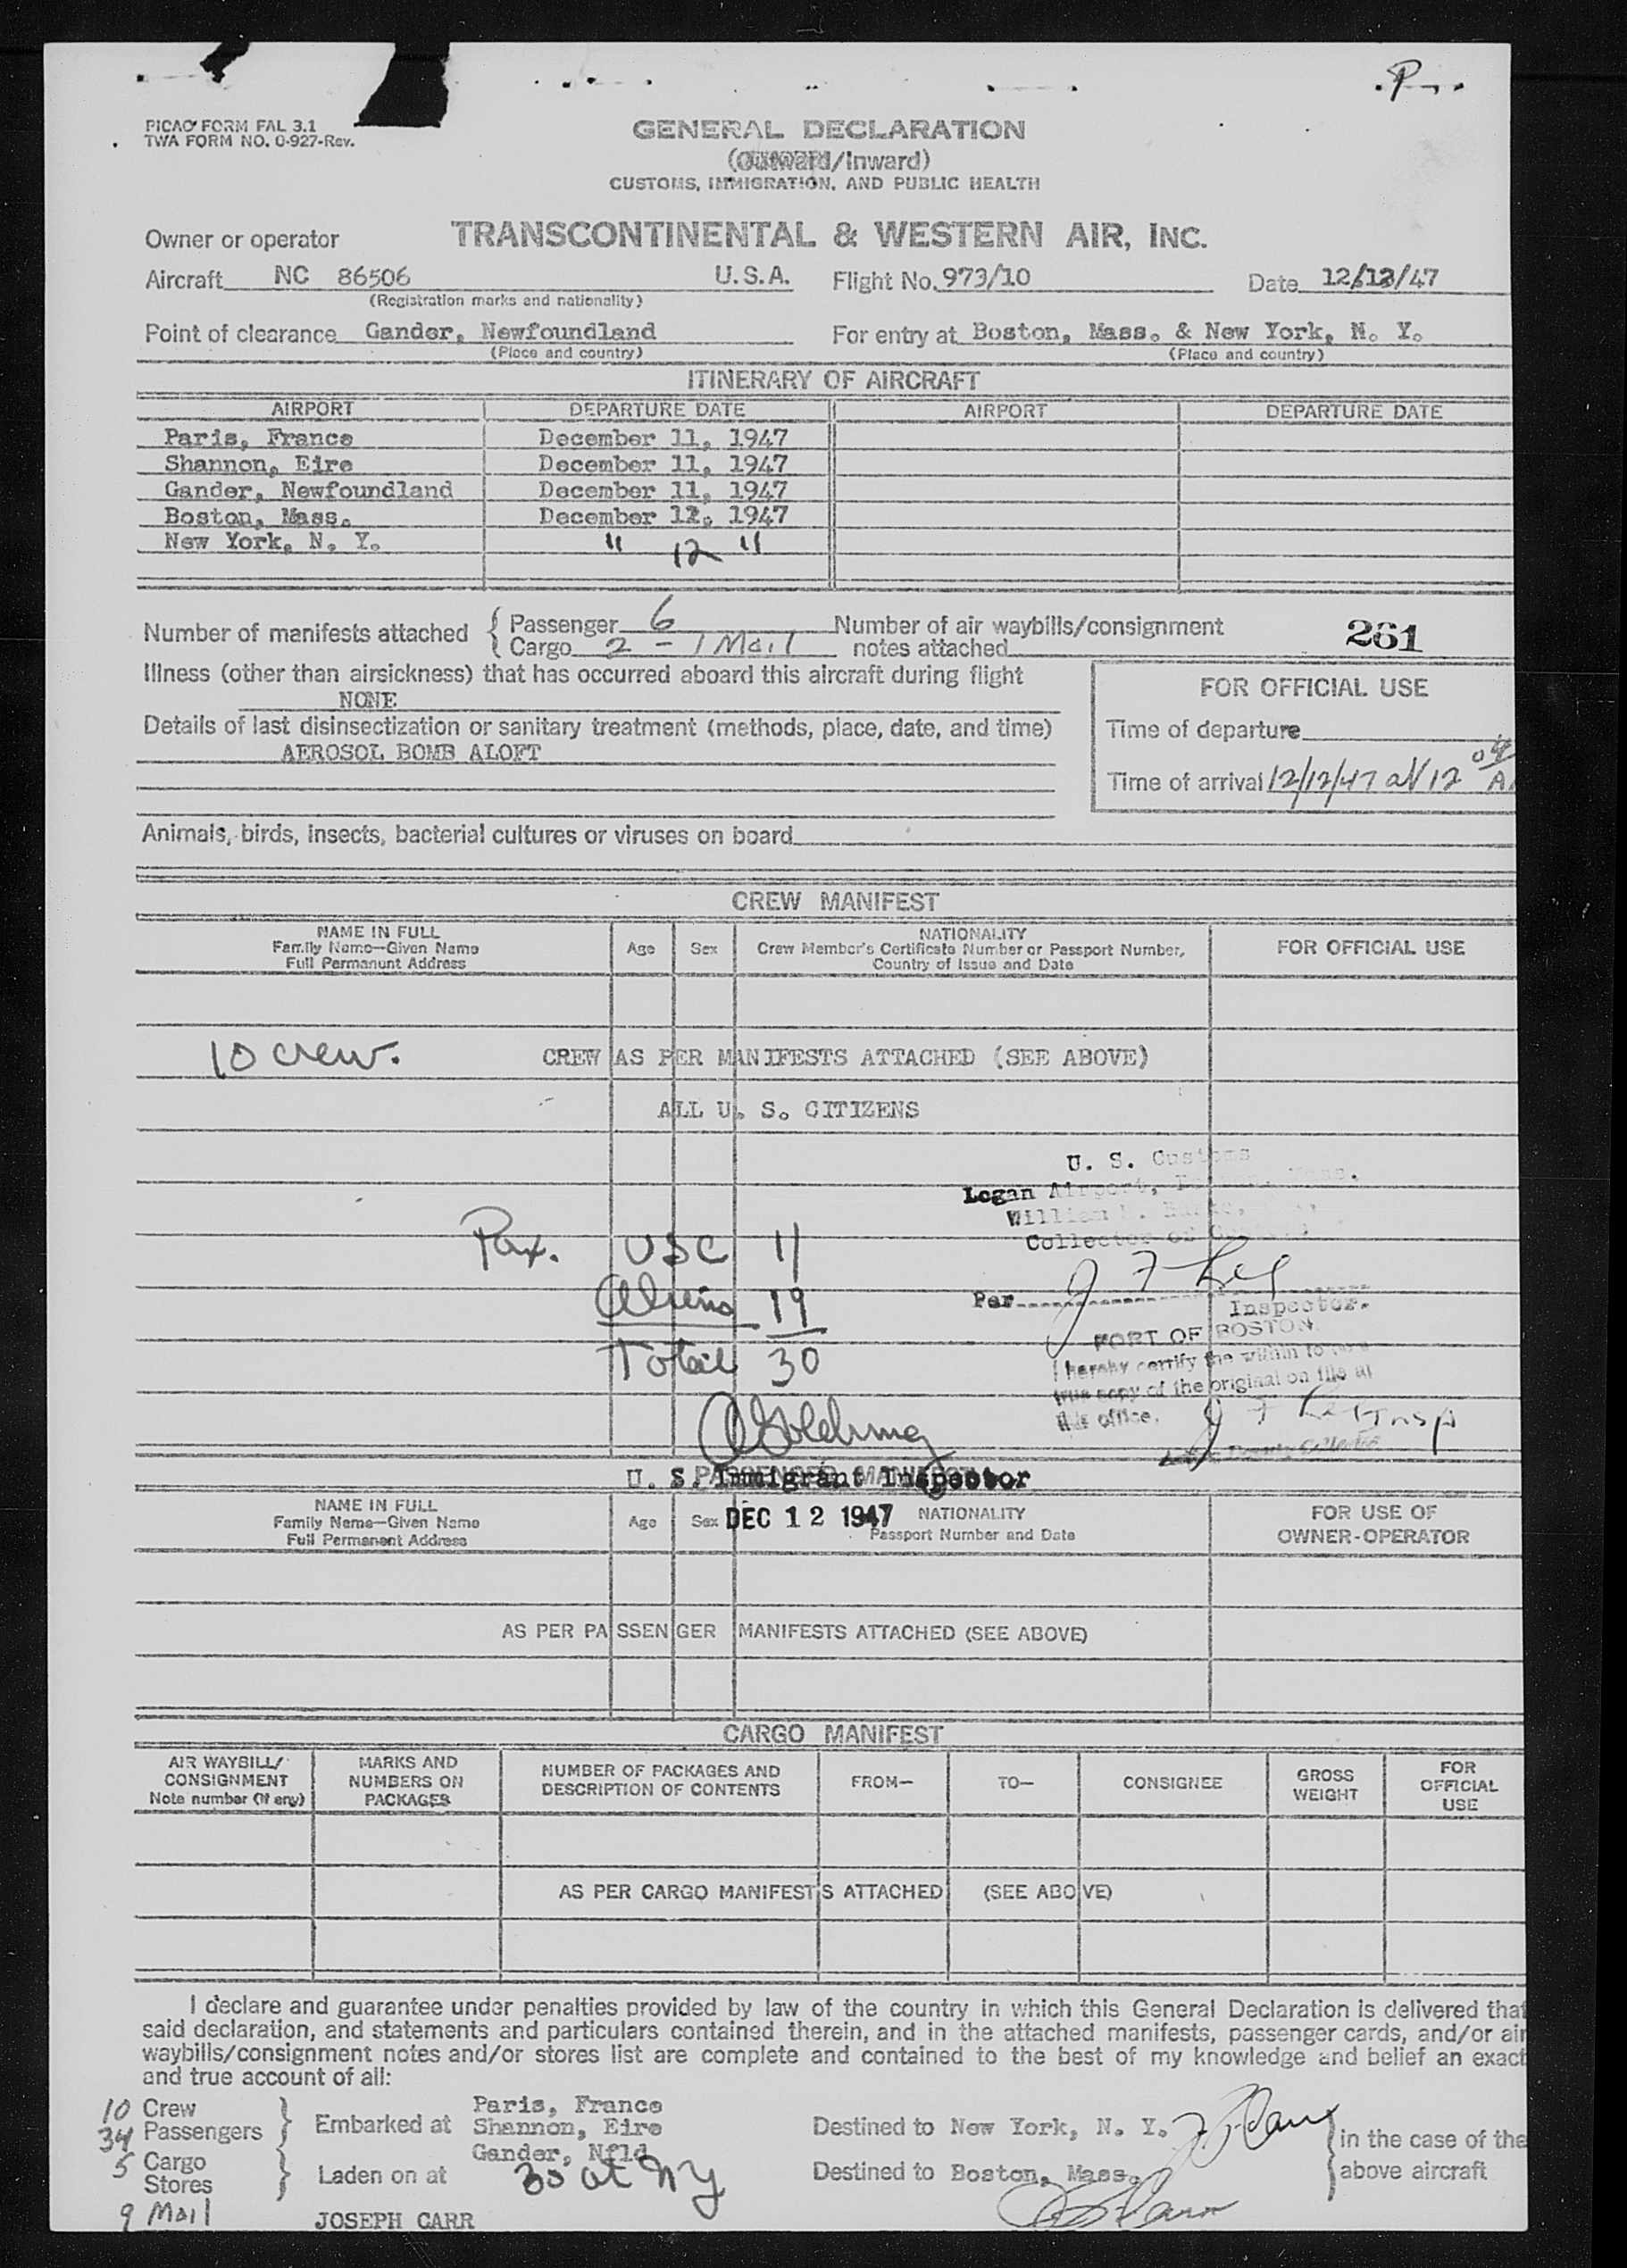 P
PICAO FORM FAL 3.1
TWA FORM NO. 0-927-Rev.
GENERAL DECLARATION
(Outward/Inward)
CUSTOMS, IMMIGRATION, AND PUBLIC HEALTH
Owner or operator TRANSCONTINENTAL & WESTERN AIR, INC.
Aircraft NC 86506 U.S.A. Flight No. 973/10 Date 12/12/47
(Registration marks and nationality)
Point of clearance Gander, Newfoundland For entry at Boston, Mass. & New York, N. Y.
(Place and country) (Place and country)
ITINERARY OF AIRCRAFT
AIRPORT DEPARTURE DATE AIRPORT DEPARTURE DATE
Paris, France December 11, 1947
Shannon, Eire December 11, 1947
Gander, Newfoundland December 11, 1947
Boston, Mass. December 12, 1947
New York, N. Y. " 12 "
Number of manifests attached { Passenger 6 Number of air waybills/consignment 261
Cargo 2 - 1 Mail notes attached
Illness (other than airsickness) that has occurred aboard this aircraft during flight
NONE
FOR OFFICIAL USE
Details of last disinsectization or sanitary treatment (methods, place, date, and time)
AEROSOL BOMB ALOFT
Time of departure
Time of arrival 12/12/47 at 12
Animals, birds, insects, bacterial cultures or viruses on board
CREW MANIFEST
NAME IN FULL
Family Name—Given Name
Full Permanent Address
Age Sex
NATIONALITY
Crew Member's Certificate Number or Passport Number,
Country of Issue and Date
FOR OFFICIAL USE
10 crew. CREW AS PER MANIFESTS ATTACHED (SEE ABOVE)
ALL U. S. CITIZENS
U. S. Customs
Logan Airport,
William
Collector of
Pax. USC 11
Aliens 19
Total 30
Per
Inspector.
PORT OF BOSTON
I hereby certify the within to
true copy of the original on file at
this office.
Insp
PASSENGER MANIFEST
U. S. Immigrant Inspector
DEC 12 1947
NAME IN FULL
Family Name—Given Name
Full Permanent Address
Age Sex
NATIONALITY
Passport Number and Date
FOR USE OF
OWNER-OPERATOR
AS PER PASSENGER MANIFESTS ATTACHED (SEE ABOVE)
CARGO MANIFEST
AIR WAYBILL/
CONSIGNMENT
Note number (if any)
MARKS AND
NUMBERS ON
PACKAGES
NUMBER OF PACKAGES AND
DESCRIPTION OF CONTENTS
FROM—
TO—
CONSIGNEE
GROSS
WEIGHT
FOR
OFFICIAL
USE
AS PER CARGO MANIFESTS ATTACHED (SEE ABOVE)
I declare and guarantee under penalties provided by law of the country in which this General Declaration is delivered that
said declaration, and statements and particulars contained therein, and in the attached manifests, passenger cards, and/or air
waybills/consignment notes and/or stores list are complete and contained to the best of my knowledge and belief an exact
and true account of all:
10 Crew
34 Passengers
5 Cargo
Stores
9 Mail
Embarked at Paris, France
Shannon, Eire
Gander, Nfld
Laden on at 30 at NY
JOSEPH CARR
Destined to New York, N. Y.
Destined to Boston, Mass.
in the case of the
above aircraft